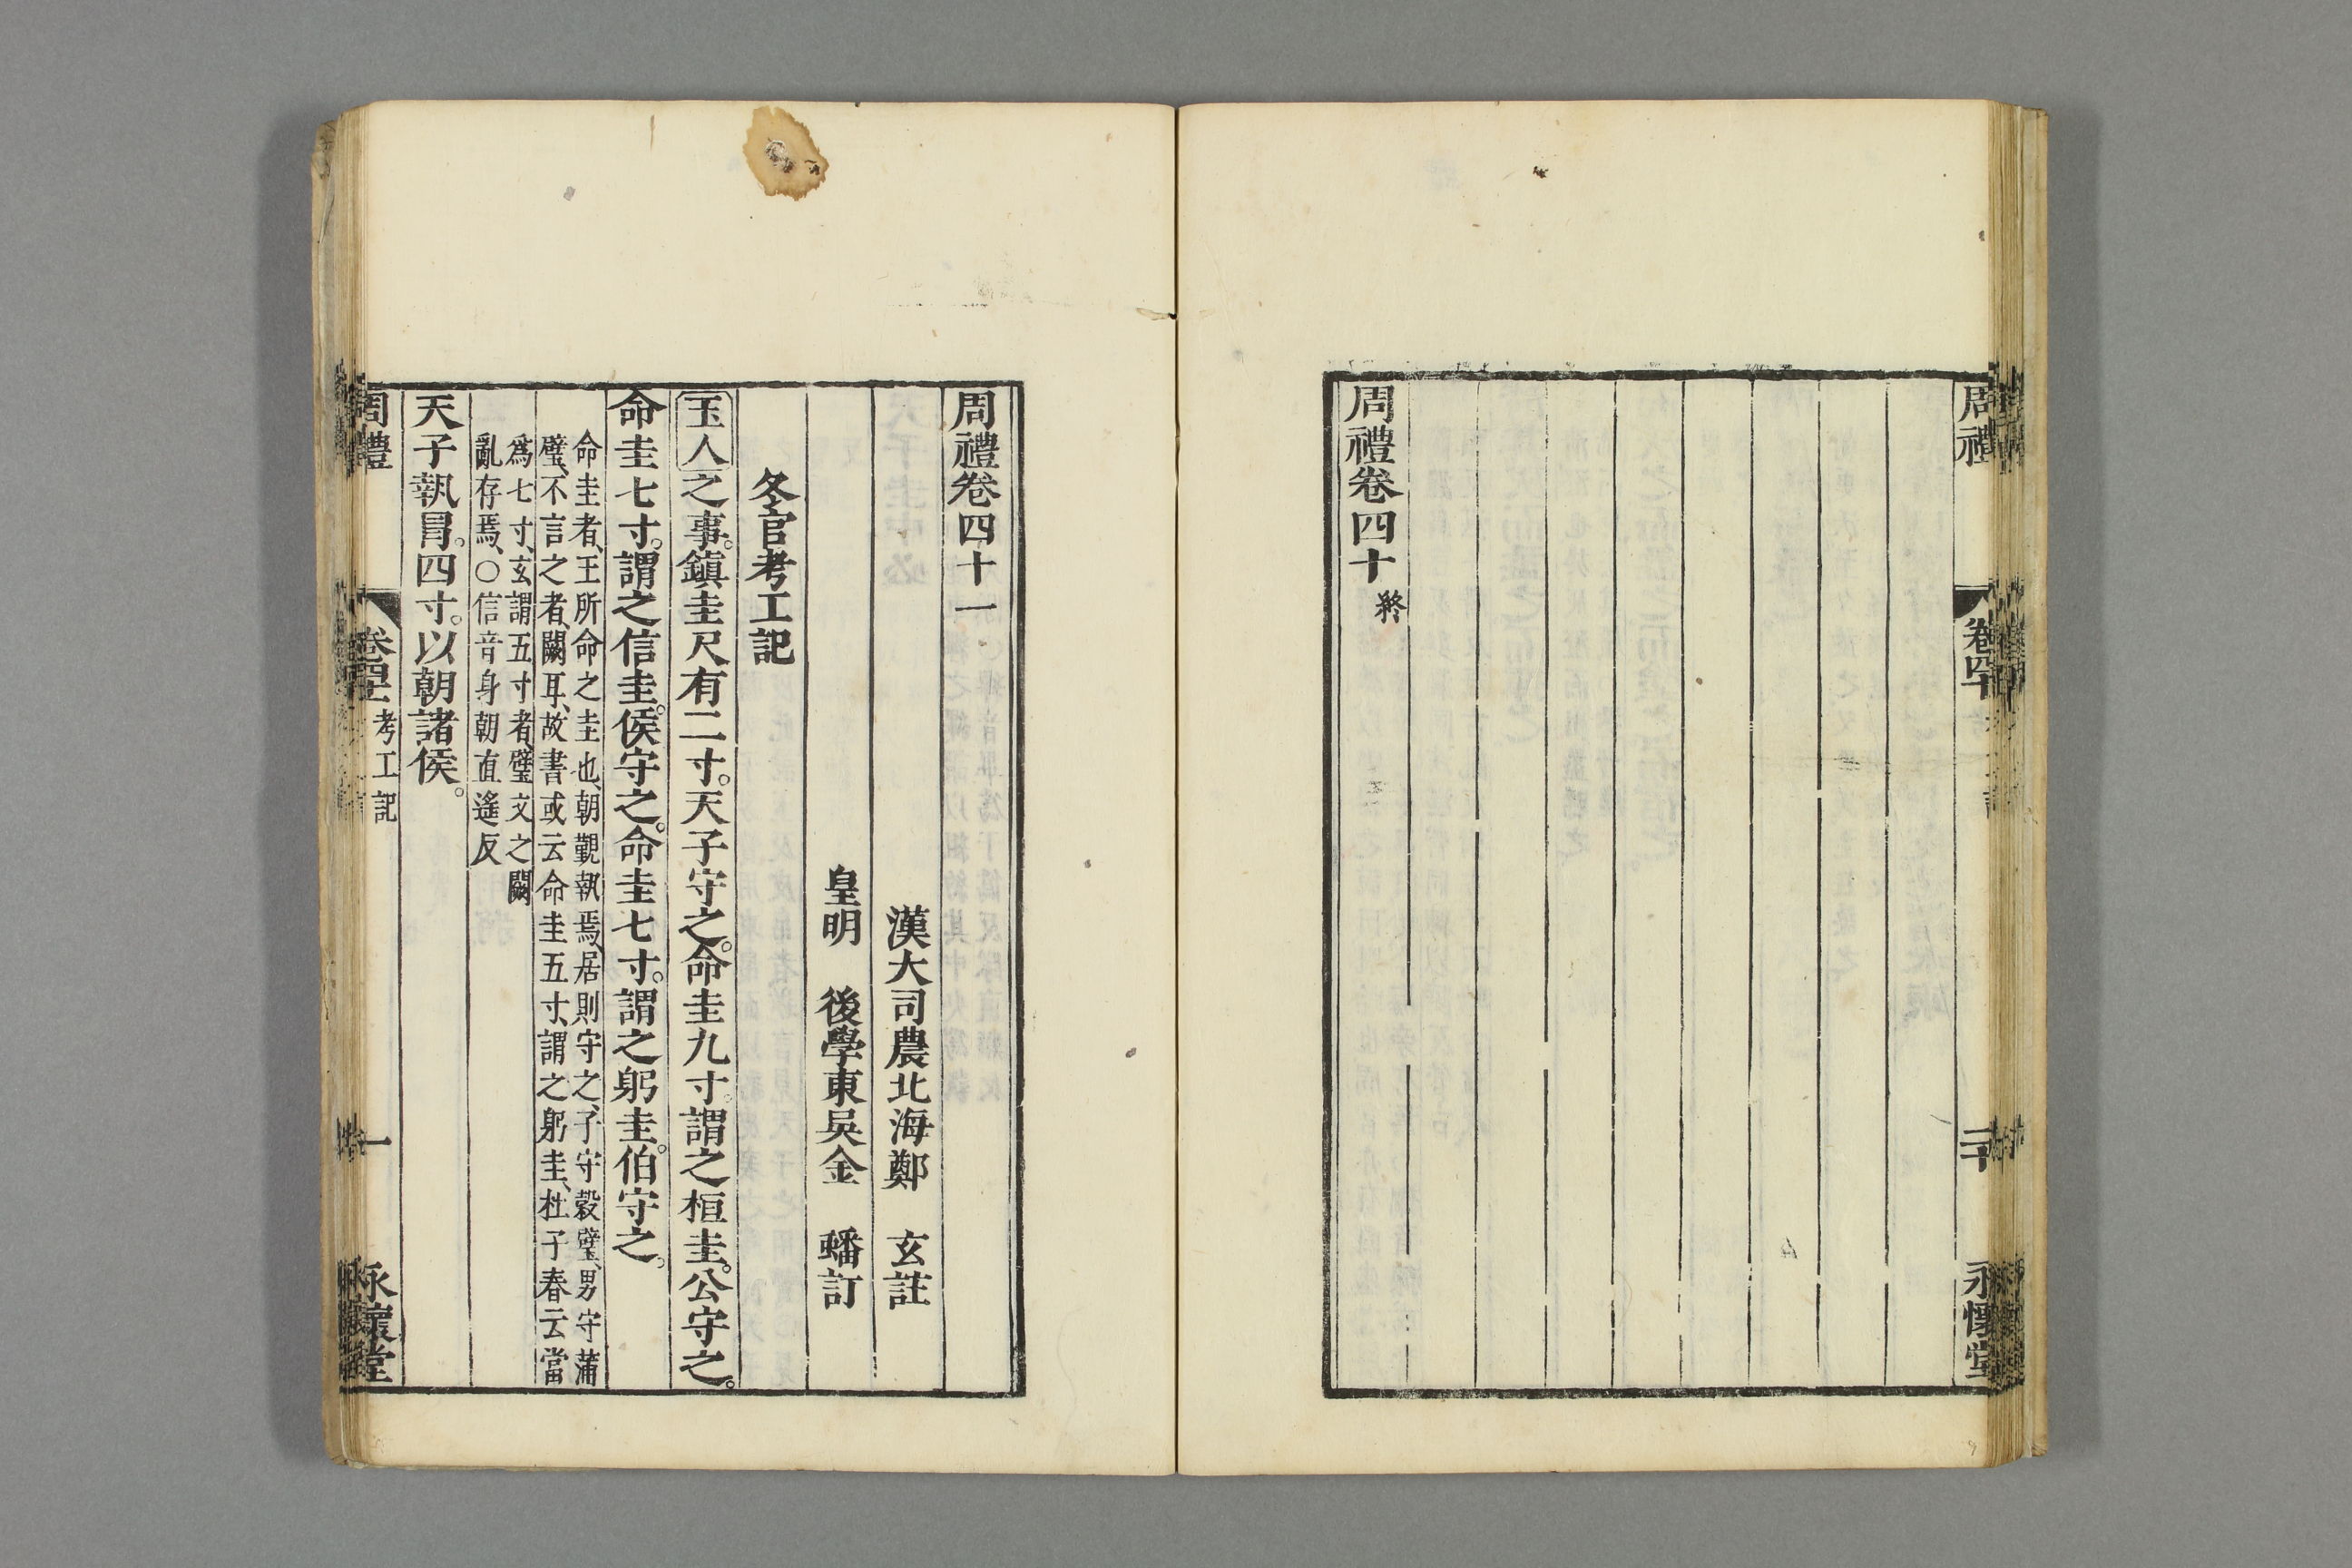 周禮
卷四十
二十
永懷堂
周禮卷四十終
周禮卷四十一
漢大司農北海鄭　玄註
皇明　後學東吳金　蟠訂
冬官考工記
玉人之事。鎮圭尺有二寸。天子守之。命圭九寸。謂之桓圭。公守之。
命圭七寸。謂之信圭。侯守之。命圭七寸。謂之躬圭。伯守之。
命圭者、王所命之圭也、朝覲執焉、居則守之、子守穀璧、男守蒲
璧、不言之者、闕耳、故書或云命圭五寸、謂之躬圭、杜子春云當
爲七寸、玄謂五寸者、璧文之闕
亂存焉、○信音身朝直遙反
天子執冒。四寸。以朝諸侯。
周禮
卷四十一
考工記
一
永懷堂